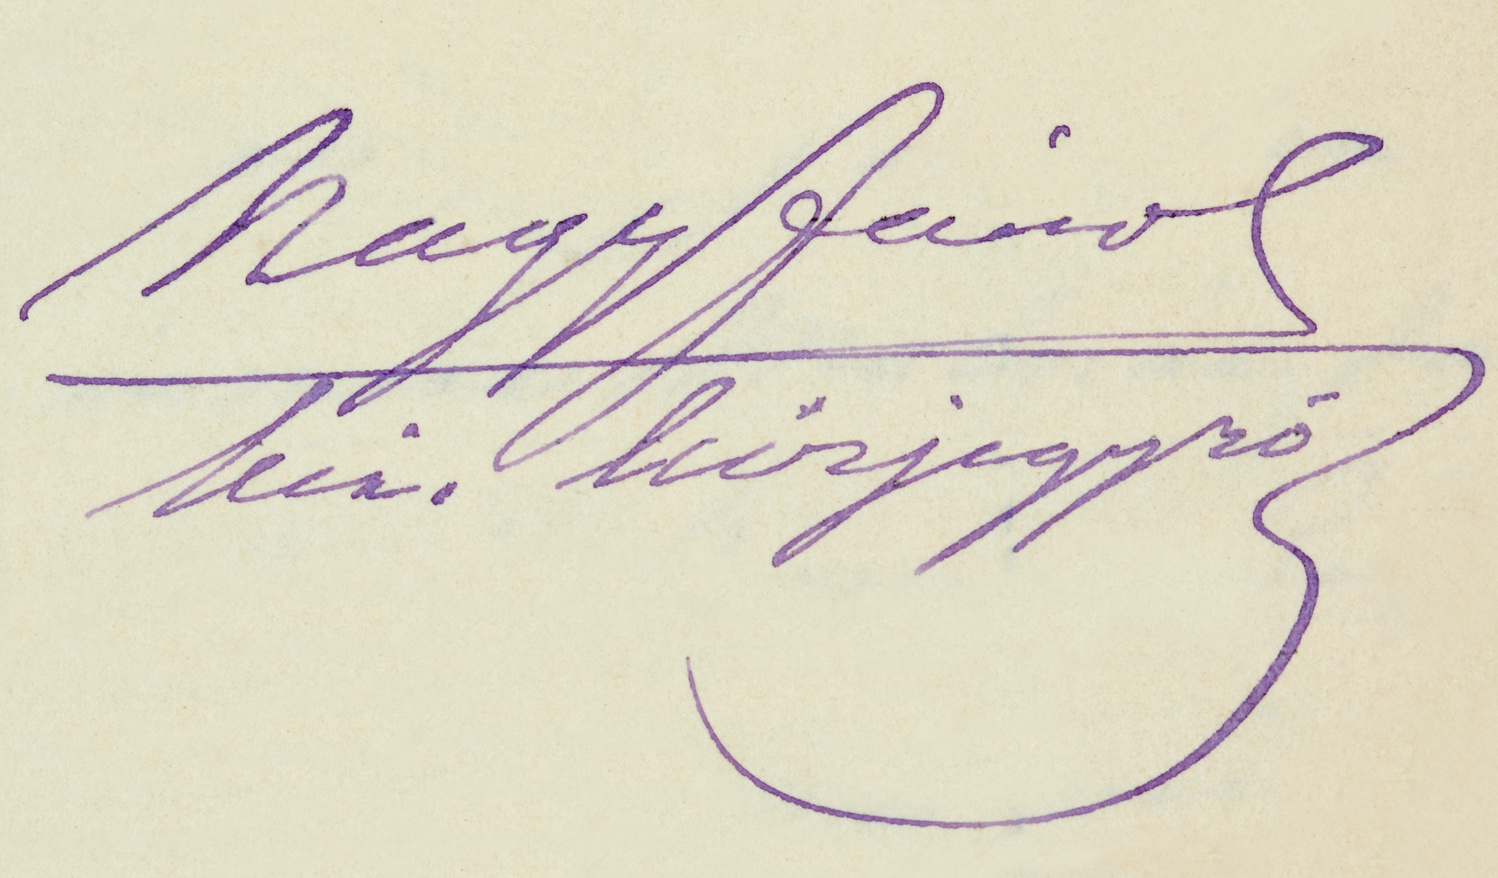 Nagy János
kir. közjegyző